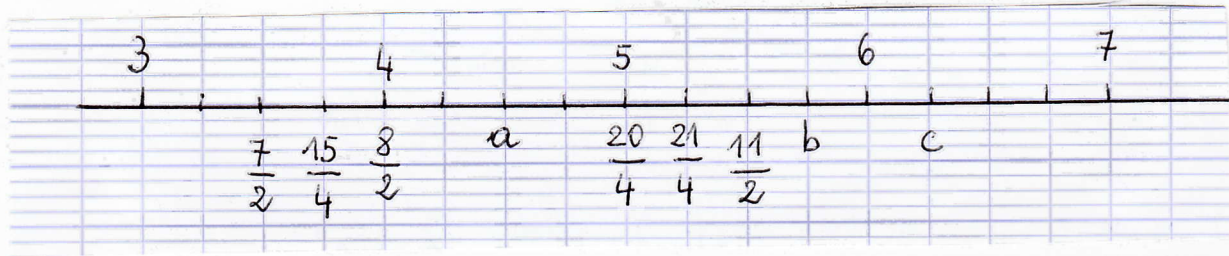 3 4 5 6 7
7/2 15/4 8/2 a 20/4 21/4 11/2 b c